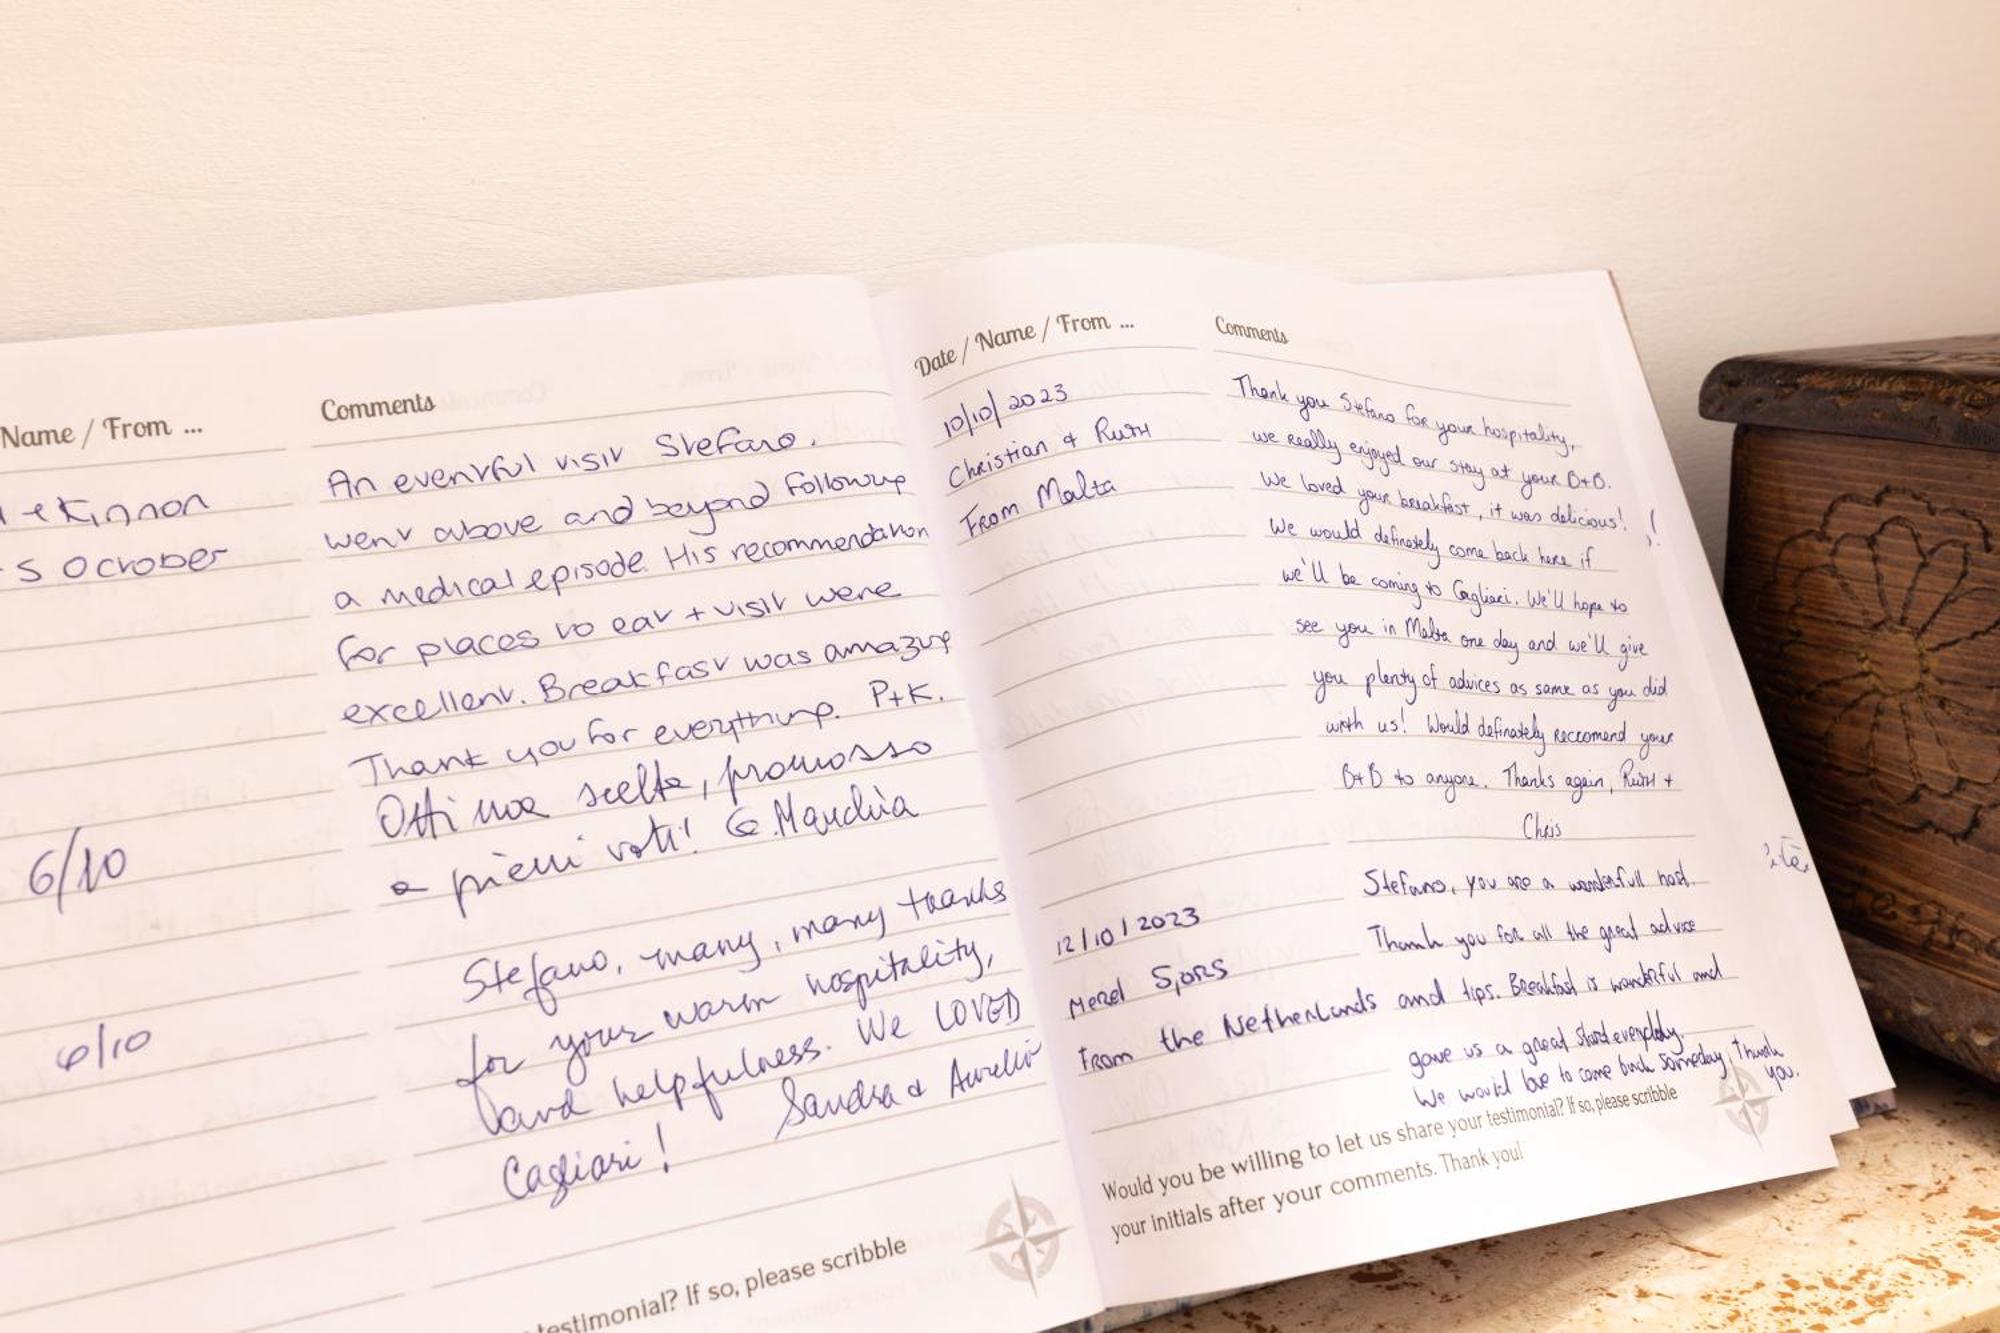 Name / From ...
Comments
Kinnon
5 October
An eventful visit Stefano.
went above and beyond following
a medical episode. His recommendation
for places to eat + visit were
excellent. Breakfast was amazing
Thank you for everything. P+K.
6/10
Ottima scelta, promosso
a pieni voti! G.
6/10
Stefano, many, many thanks
for your warm hospitality,
and helpfulness. We LOVED
Cagliari! Sandra & Aurelio
testimonial? If so, please scribble
Date / Name / From ...
Comments
10/10/2023
Christian & Ruth
From Malta
Thank you Stefano for your hospitality,
we really enjoyed our stay at your B+B.
We loved your breakfast, it was delicious!!
We would definately come back here if
we'll be coming to Cagliari. We'll hope to
see you in Malta one day and we'll give
you plenty of advices as same as you did
with us! Would definately reccomend your
B+B to anyone. Thanks again, Ruth +
Chris
12/10/2023
Merel Sjors
From the Netherlands
Stefano, you are a wonderfull host.
Thank you for all the great advice
and tips. Breakfast is wonderful and
gave us a great start everyday.
We would love to come back someday, Thank
you.
Would you be willing to let us share your testimonial? If so, please scribble
your initials after your comments. Thank you!